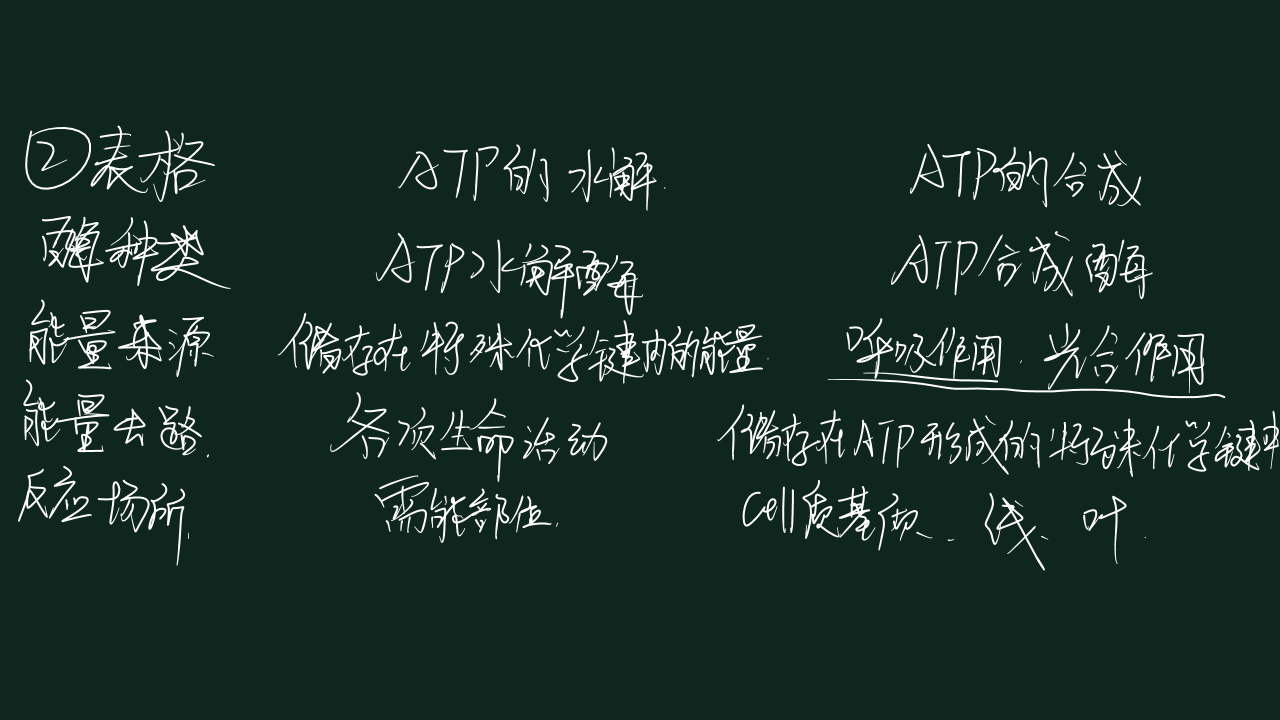 ②表格 ATP的水解 ATP的合成
酶种类 ATP水解酶 ATP合成酶
能量来源 储存在特殊化学键内的能量 呼吸作用、光合作用
能量去路 各次生命活动 储存在ATP形成的特殊化学键中
反应场所 需能部位 cell质基质、线、叶